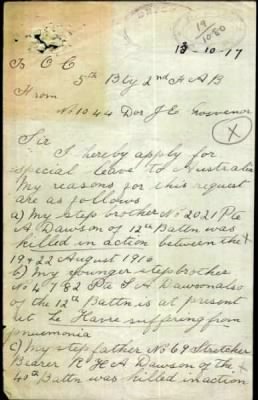 19
1080
13-10-17
To O C
5th Bty 2nd F A B
From
No 1044 Dvr J. E. Grosvenor
X
Sir
I hereby apply for
special leave to Australia
My reasons for this request
are as follows
a) My step brother No 2021 Pte
A Dawson of 12th Battn was
killed in action between the
19 & 22 August 1916
b) My younger step brother
No 4782 Pte Dawson also
of the 12th Battn is at present
at Le Havre suffering from
pneumonia
c) My step father No 69 Stretcher
Bearer R H A Dawson of the
40th Battn was killed in action